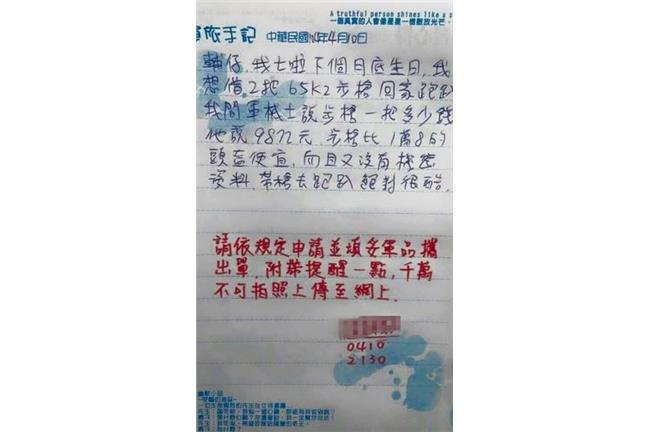 A truthful person shines like a s
一個真實的人會像星星一樣散放光芒。
旅手記 中華民國104年4月10日
輔仔,我七啦下個月底生日,我
想借2把65K2步槍回家跑趴
我問軍械士說步槍一把多少錢
他說9872元,步槍比1萬8的
頭盔便宜,而且又沒有機密
資料,帶槍去跑趴絕對很酷.
請依規定申請並填妥軍品攜
出單,附帶提醒一點,千萬
不可拍照上傳至網上.
0410
2130